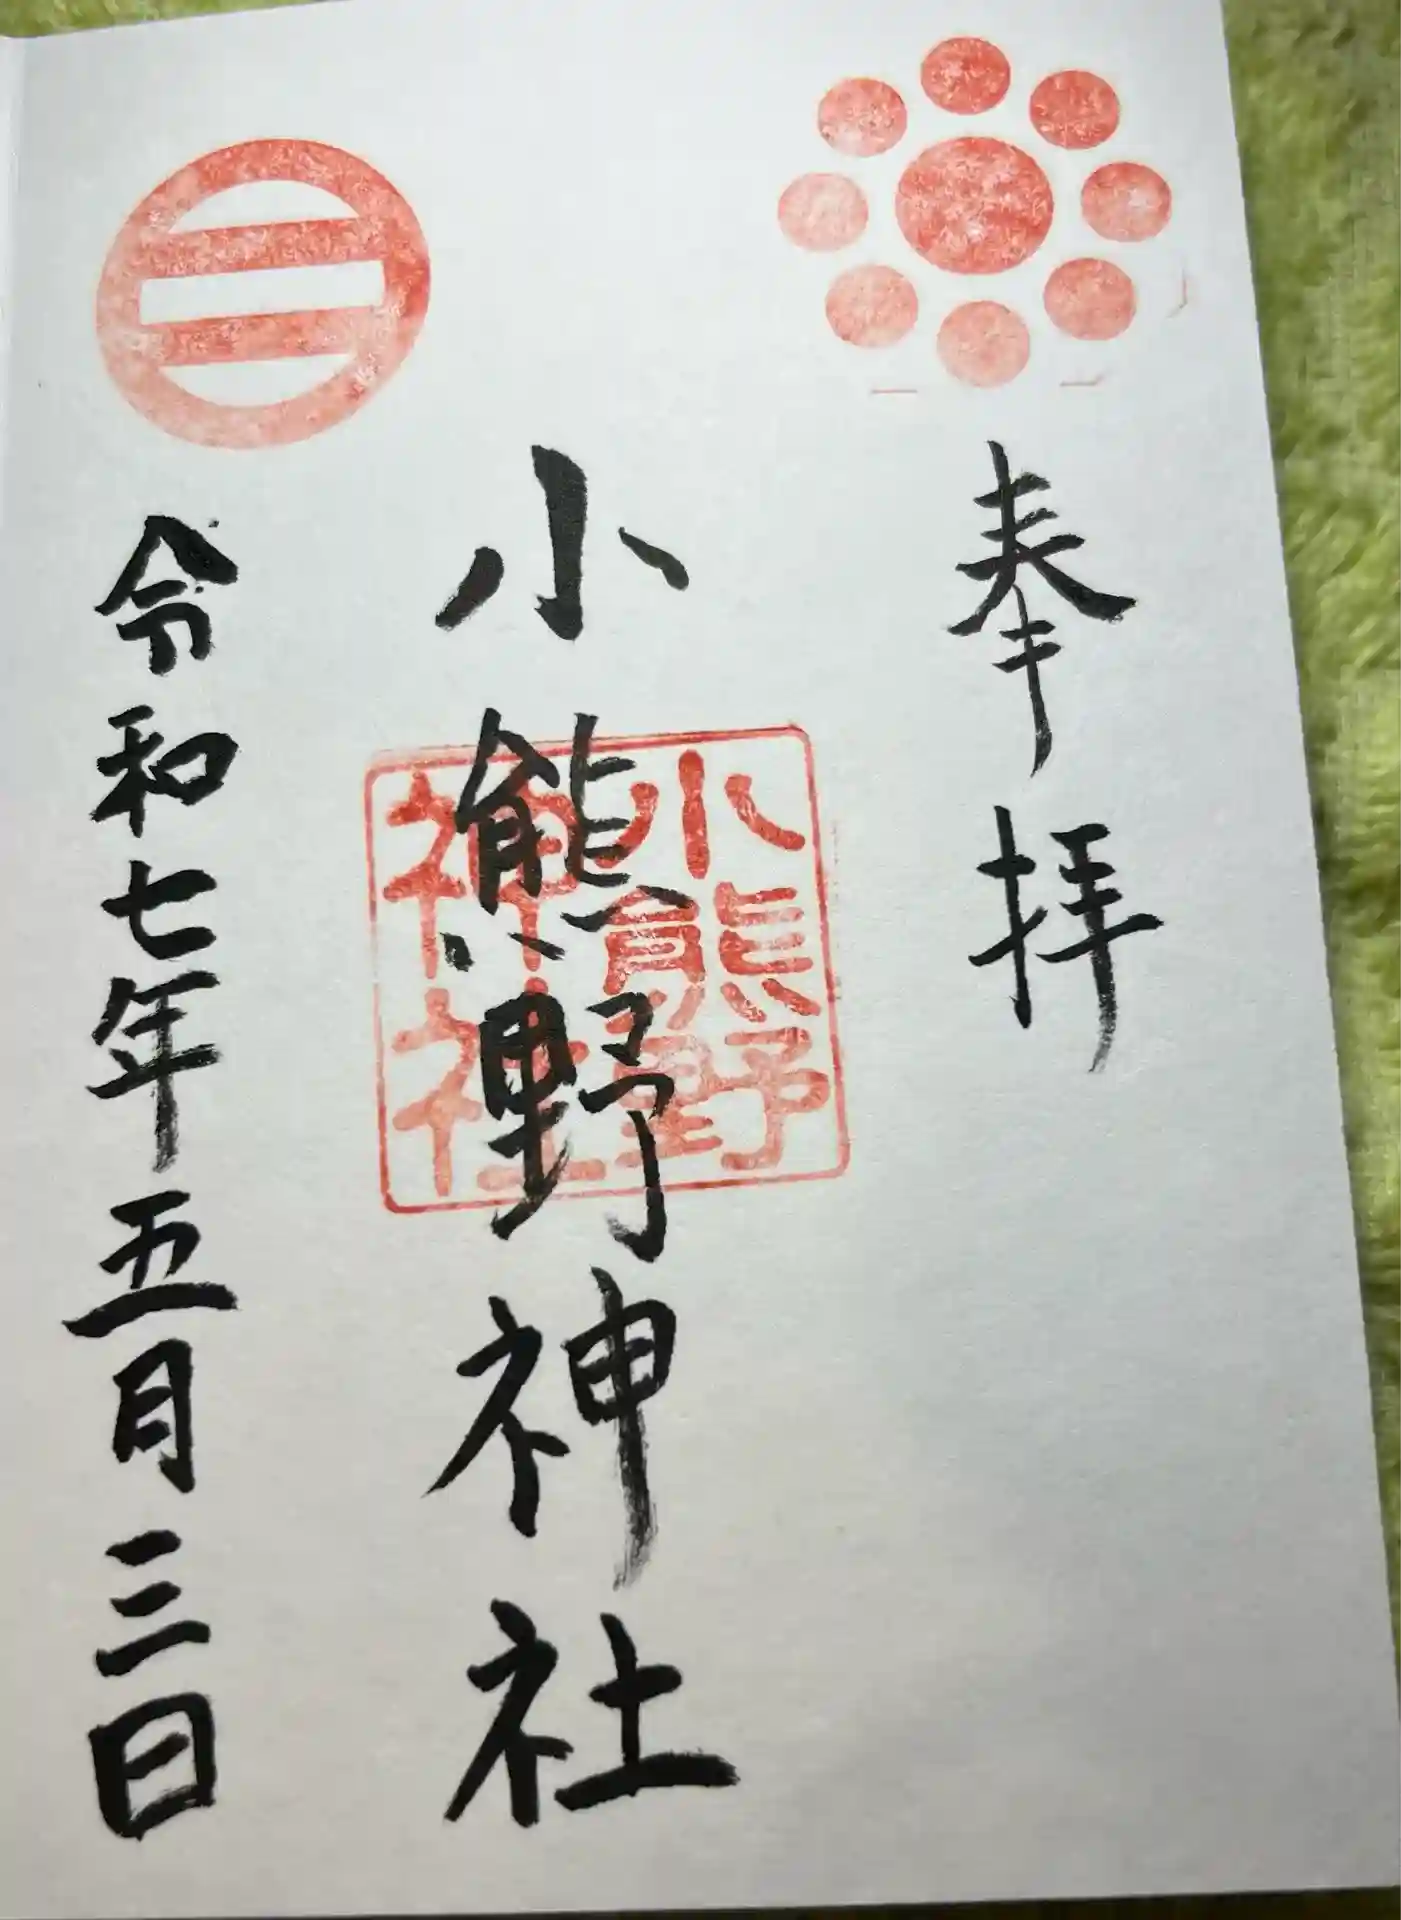 奉拝
小熊野神社
小熊野
神社
令和七年五月三日